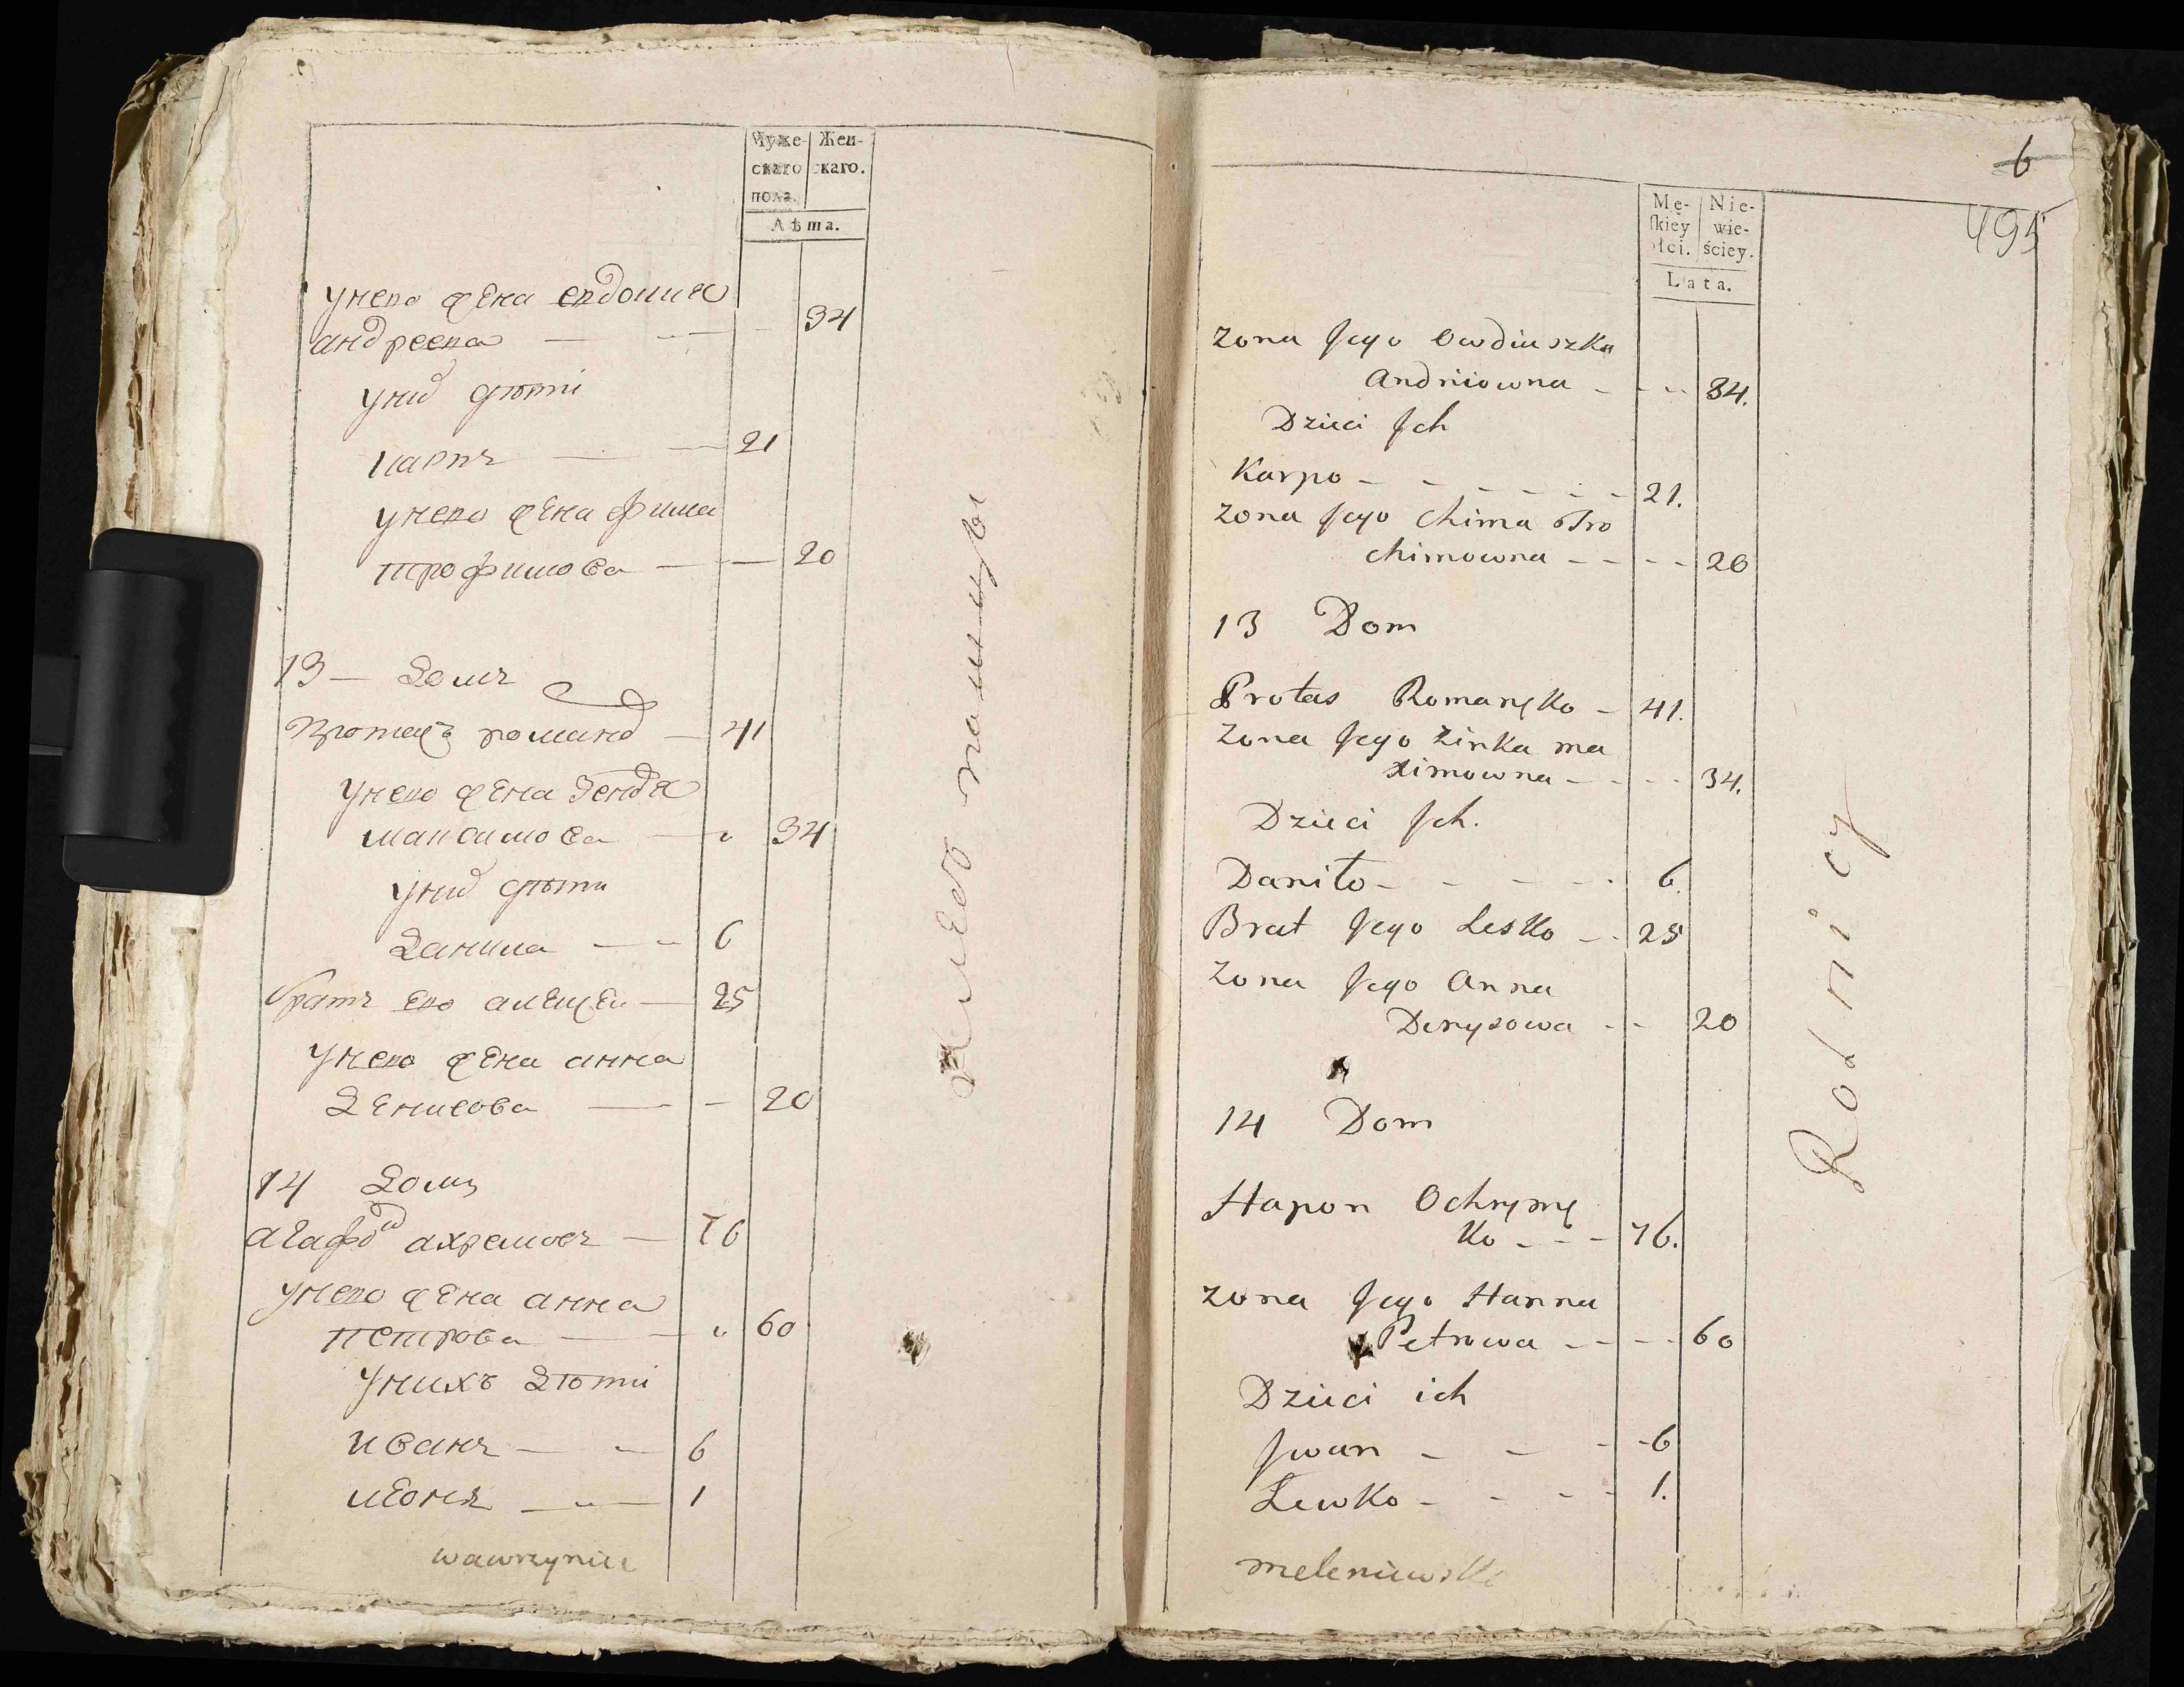 Муже- Жен-
скаго скаго.
пола.
Лѣта.
унево жена евдокия
андреева — — — 34
уних дѣти
карпъ — — 21
унево жена фима
трофимова — — 20
13 — Домъ
Протасъ романов — 41
унево жена Зендя
максимова — „ 34
уних дѣти
Данила — — 6
братъ ево алексей — 25
унево жена анна
Денисова — — 20
14 Домъ
агафон ахремовъ — 76
унево жена анна
петрова — — „ 60
унихъ дѣти
иванъ — — 6
леонъ — „ — 1
wawrzyniec
хлебопашцы
6
495
Mę- Nie-
skiey wie-
płci. ściey.
Lata.
Zona Jego Owdiuszka
Andriiowna - - - 34.
Dzieci Jch
Karpo - - - - - - 21.
Zona Jego Chima Tro
chimowna - - - - 20
13 Dom
Protas Romanęko - 41.
Zona Jego Zinka ma
ximowna - - - - 34.
Dzieci Jch.
Daniło - - - - - 6.
Brat Jego Lesko - - 25
Zona Jego Anna
Denysowa - - 20
14 Dom
Hapon Ochrymę
ko - - - 76.
Zona Jego Hanna
Petrowa - - - - 60
Dzieci ich
Jwan - - - - 6
Lewko - - - - 1.
meleniewski
Rolnicy